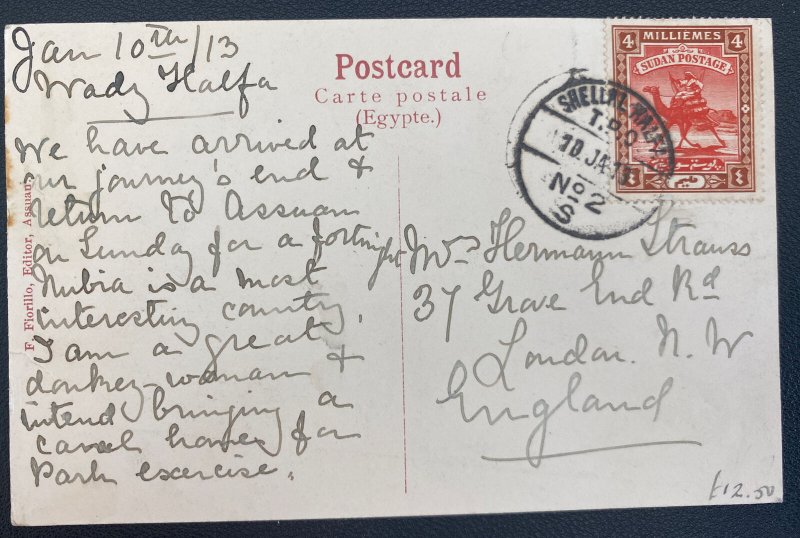 Jan 10th/13
Wady Halfa
We have arrived at
our journey's end &
return to Assuan
on Sunday for a fortnight
Nubia is a most
interesting country,
I am a great
donkey-woman &
intend bringing a
home for
Park exercise.
F. Fiorillo, Editor, Assuan.
Postcard
Carte postale
(Egypte.)
4 MILLIÈMES 4
SUDAN POSTAGE
SHELLAL
T.P.O
10 JA 13
No 2
S
Mrs Hermann Strauss
37 Grove End Rd
London. N. W
England
£12.50